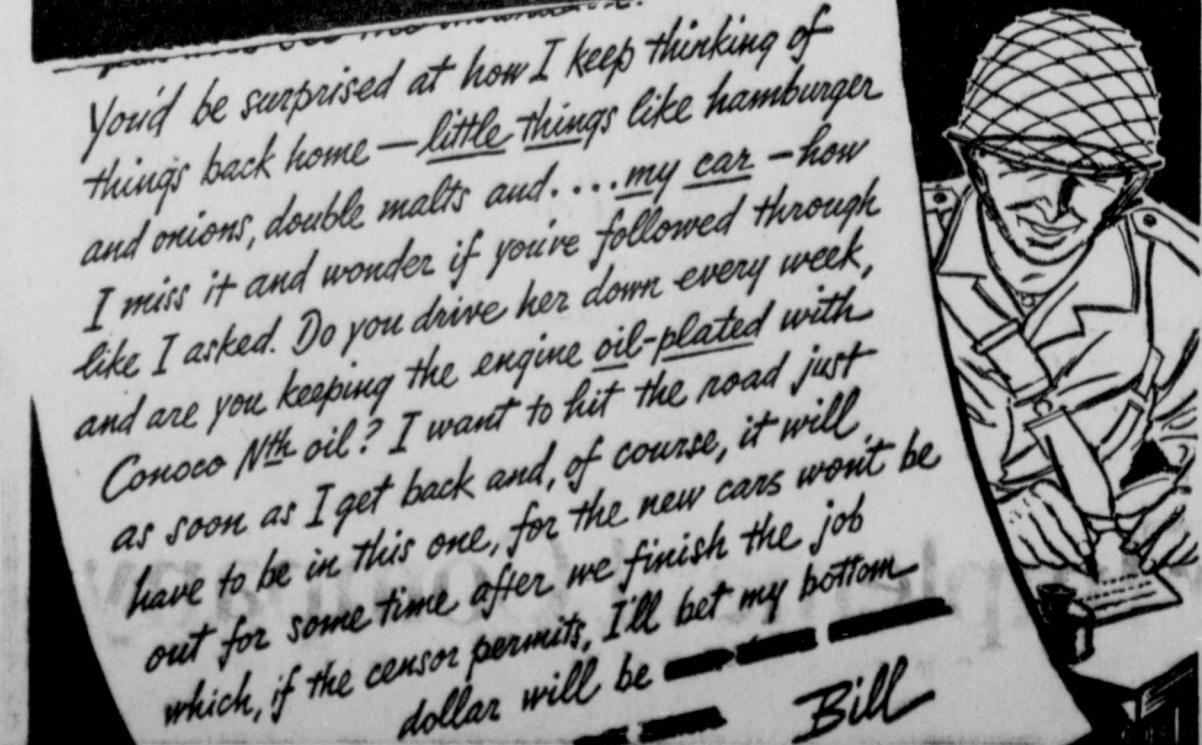 You'd be surprised at how I keep thinking of
things back home — little things like hamburger
and onions, double malts and.... my car – how
I miss it and wonder if you've followed through
like I asked. Do you drive her down every week,
and are you keeping the engine oil-plated with
Conoco Nth oil? I want to hit the road just
as soon as I get back and, of course, it will
have to be in this one, for the new cars won't be
out for some time after we finish the job
which, if the censor permits, I'll bet my bottom
dollar will be
Bill